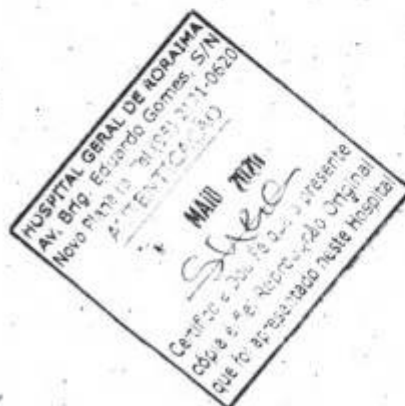 HOSPITAL GERAL DE RORAIMA
AV. Brig. Eduardo Gomes, S/N
Novo Planalto Tel -0620
AUTENTICAÇÃO
MAIO 2020
Certifico e Dou Fé que a presente
cópia e Fiel Reprodução Original
que foi apresentado neste Hospital